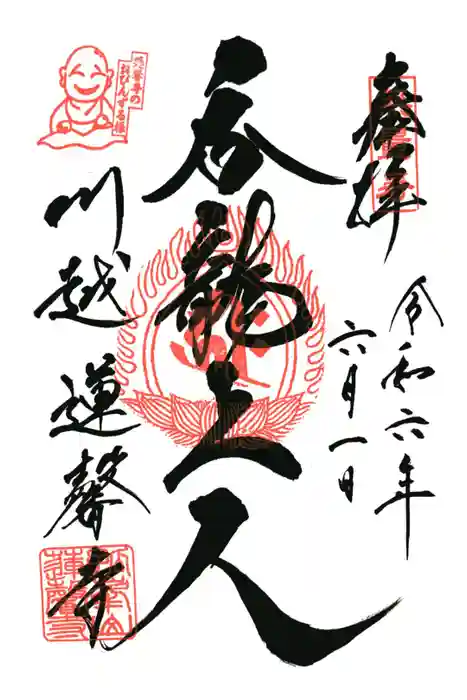 奉拝
令和六年
六月一日
呑龍上人
川越
蓮馨寺
蓮馨寺の
おびんずる様